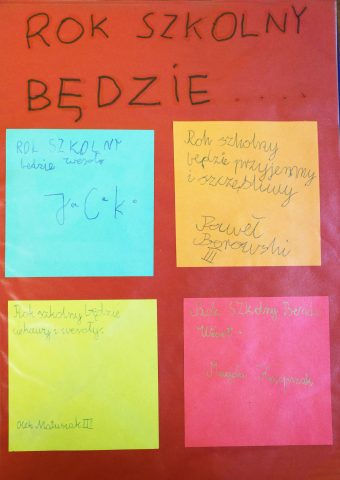 ROK SZKOLNY
BĘDZIE.....
ROK SZKOLNY
będzie wesoły
Jacek
Rok szkolny
będzie przyjemny
i szczęśliwy
Paweł
Borowski
III
Rok szkolny będzie
ciekawy i wesoły.
Olek Matusiak III
Rok Szkolny
Magda